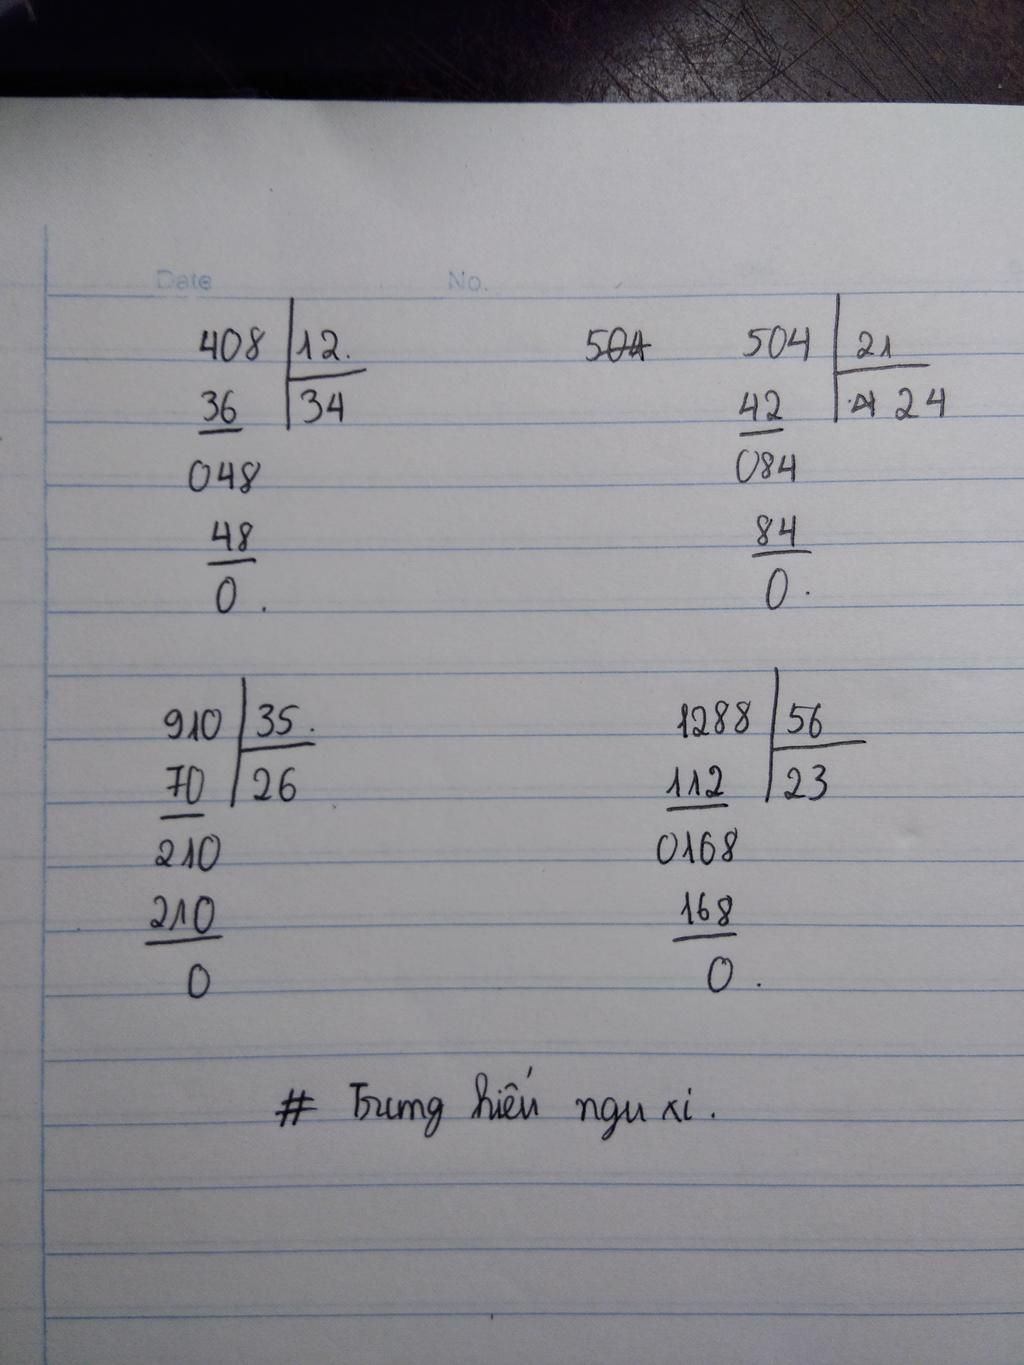 Date No.
408 12. 504 504 21
36 34 42 24
048 084
48 84
0. 0.
910 35. 1288 56
70 26 112 23
210 0168
210 168
0 0.
# Trung hiếu ngu xi.